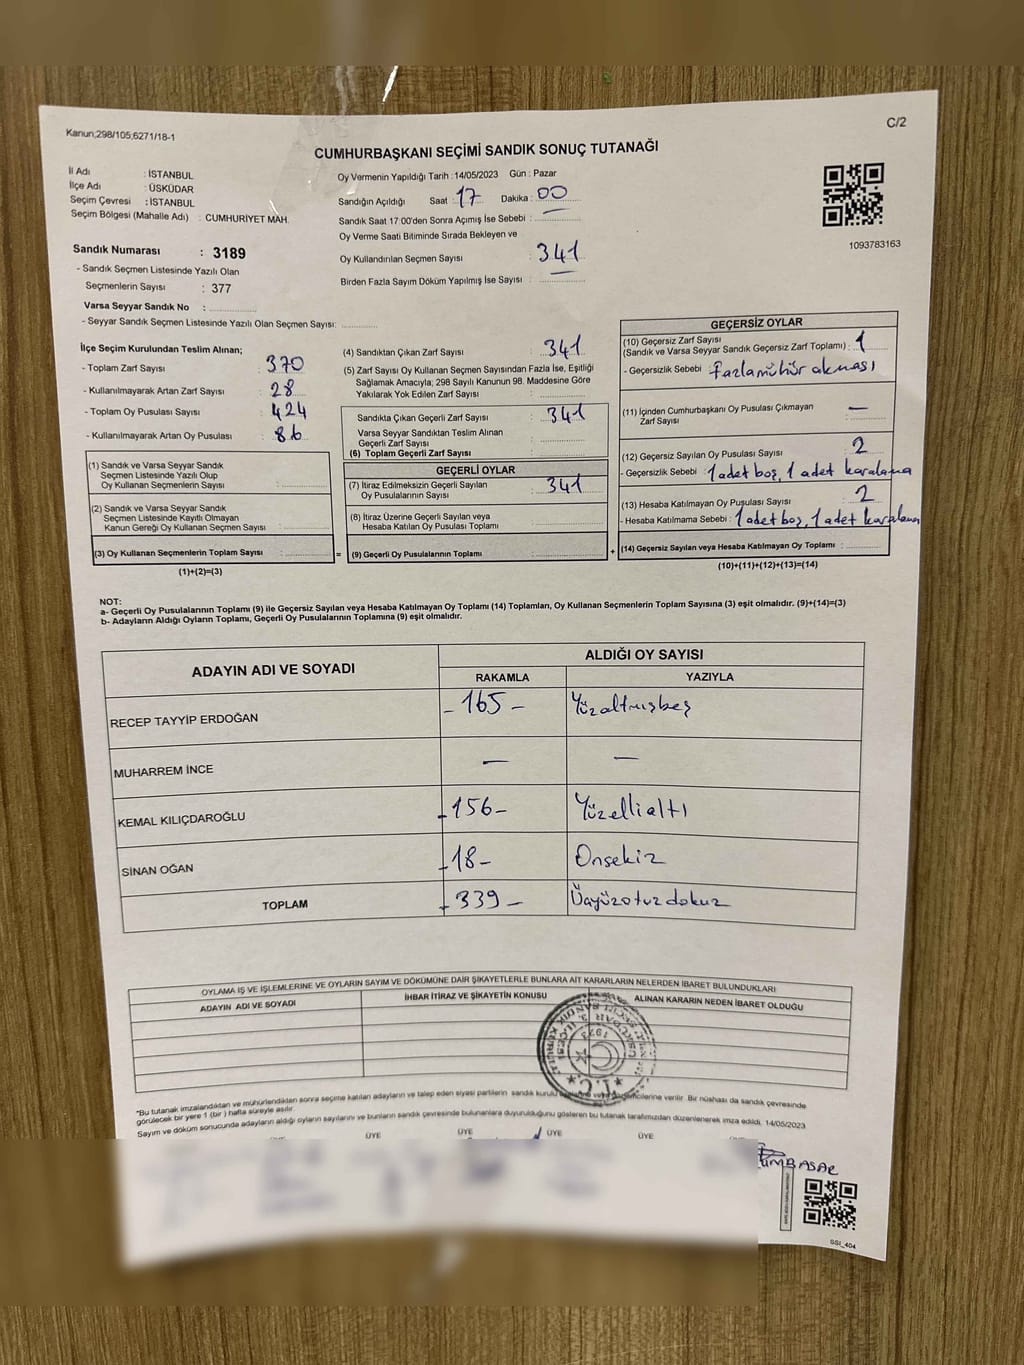 Kanun;298/105;6271/18-1
C/2
CUMHURBAŞKANI SEÇİMİ SANDIK SONUÇ TUTANAĞI
İl Adı : İSTANBUL
İlçe Adı : ÜSKÜDAR
Seçim Çevresi : İSTANBUL
Seçim Bölgesi (Mahalle Adı) : CUMHURİYET MAH.
Sandık Numarası : 3189
- Sandık Seçmen Listesinde Yazılı Olan
Seçmenlerin Sayısı : 377
Varsa Seyyar Sandık No :
- Seyyar Sandık Seçmen Listesinde Yazılı Olan Seçmen Sayısı:
Oy Vermenin Yapıldığı Tarih : 14/05/2023 Gün : Pazar
Sandığın Açıldığı Saat : 17 Dakika : 00
Sandık Saat 17:00'den Sonra Açımış İse Sebebi :
Oy Verme Saati Bitiminde Sırada Bekleyen ve
Oy Kullandırılan Seçmen Sayısı : 341
Birden Fazla Sayım Döküm Yapılmış İse Sayısı :
1093783163
İlçe Seçim Kurulundan Teslim Alınan;
- Toplam Zarf Sayısı : 370
- Kullanılmayarak Artan Zarf Sayısı : 28
- Toplam Oy Pusulası Sayısı : 424
- Kullanılmayarak Artan Oy Pusulası : 86
(1) Sandık ve Varsa Seyyar Sandık
Seçmen Listesinde Yazılı Olup
Oy Kullanan Seçmenlerin Sayısı :
(2) Sandık ve Varsa Seyyar Sandık
Seçmen Listesinde Kayıtlı Olmayan
Kanun Gereği Oy Kullanan Seçmen Sayısı :
(3) Oy Kullanan Seçmenlerin Toplam Sayısı :
(1)+(2)=(3)
(4) Sandıktan Çıkan Zarf Sayısı : 341
(5) Zarf Sayısı Oy Kullanan Seçmen Sayısından Fazla İse, Eşitliği
Sağlamak Amacıyla; 298 Sayılı Kanunun 98. Maddesine Göre
Yakılarak Yok Edilen Zarf Sayısı :
Sandıkta Çıkan Geçerli Zarf Sayısı : 341
Varsa Seyyar Sandıktan Teslim Alınan
Geçerli Zarf Sayısı :
(6) Toplam Geçerli Zarf Sayısı :
GEÇERLİ OYLAR
(7) İtiraz Edilmeksizin Geçerli Sayılan
Oy Pusulalarının Sayısı : 341
(8) İtiraz Üzerine Geçerli Sayılan veya
Hesaba Katılan Oy Pusulası Toplamı :
= (9) Geçerli Oy Pusulalarının Toplamı :
GEÇERSİZ OYLAR
(10) Geçersiz Zarf Sayısı
(Sandık ve Varsa Seyyar Sandık Geçersiz Zarf Toplamı) : 1
- Geçersizlik Sebebi : fazla mühür olması
(11) İçinden Cumhurbaşkanı Oy Pusulası Çıkmayan
Zarf Sayısı : —
(12) Geçersiz Sayılan Oy Pusulası Sayısı : 2
- Geçersizlik Sebebi : 1 adet boş, 1 adet karalama
(13) Hesaba Katılmayan Oy Pusulası Sayısı : 2
- Hesaba Katılmama Sebebi : 1 adet boş, 1 adet karalama
+ (14) Geçersiz Sayılan veya Hesaba Katılmayan Oy Toplamı :
(10)+(11)+(12)+(13)=(14)
NOT:
a- Geçerli Oy Pusulalarının Toplamı (9) ile Geçersiz Sayılan veya Hesaba Katılmayan Oy Toplamı (14) Toplamları, Oy Kullanan Seçmenlerin Toplam Sayısına (3) eşit olmalıdır. (9)+(14)=(3)
b- Adayların Aldığı Oyların Toplamı, Geçerli Oy Pusulalarının Toplamına (9) eşit olmalıdır.
ADAYIN ADI VE SOYADI ALDIĞI OY SAYISI
RAKAMLA YAZIYLA
RECEP TAYYİP ERDOĞAN - 165 - Yüzaltmışbeş
MUHARREM İNCE — —
KEMAL KILIÇDAROĞLU - 156 - Yüzellialtı
SİNAN OĞAN - 18 - Onsekiz
TOPLAM - 339 - Üçyüzotuzdokuz
OYLAMA İŞ VE İŞLEMLERİNE VE OYLARIN SAYIM VE DÖKÜMÜNE DAİR ŞİKAYETLERLE BUNLARA AİT KARARLARIN NELERDEN İBARET BULUNDUKLARI
ADAYIN ADI VE SOYADI İHBAR İTİRAZ VE ŞİKAYETİN KONUSU ALINAN KARARIN NEDEN İBARET OLDUĞU
T.C.
"Bu tutanak imzalandıktan ve mühürlendikten sonra seçime katılan adayların ve talep eden siyasi partilerin sandık kurulu verilir. Bir nüshası da sandık çevresinde
görülecek bir yere 1 (bir ) hafta süreyle asılır.
Sayım ve döküm sonucunda adayların aldığı oyların sayılarını ve bunların sandık çevresinde bulunanlara duyurulduğunu gösteren bu tutanak tarafımızdan düzenlenerek imza edildi. 14/05/2023
ÜYE ÜYE ÜYE ÜYE
SSI_404